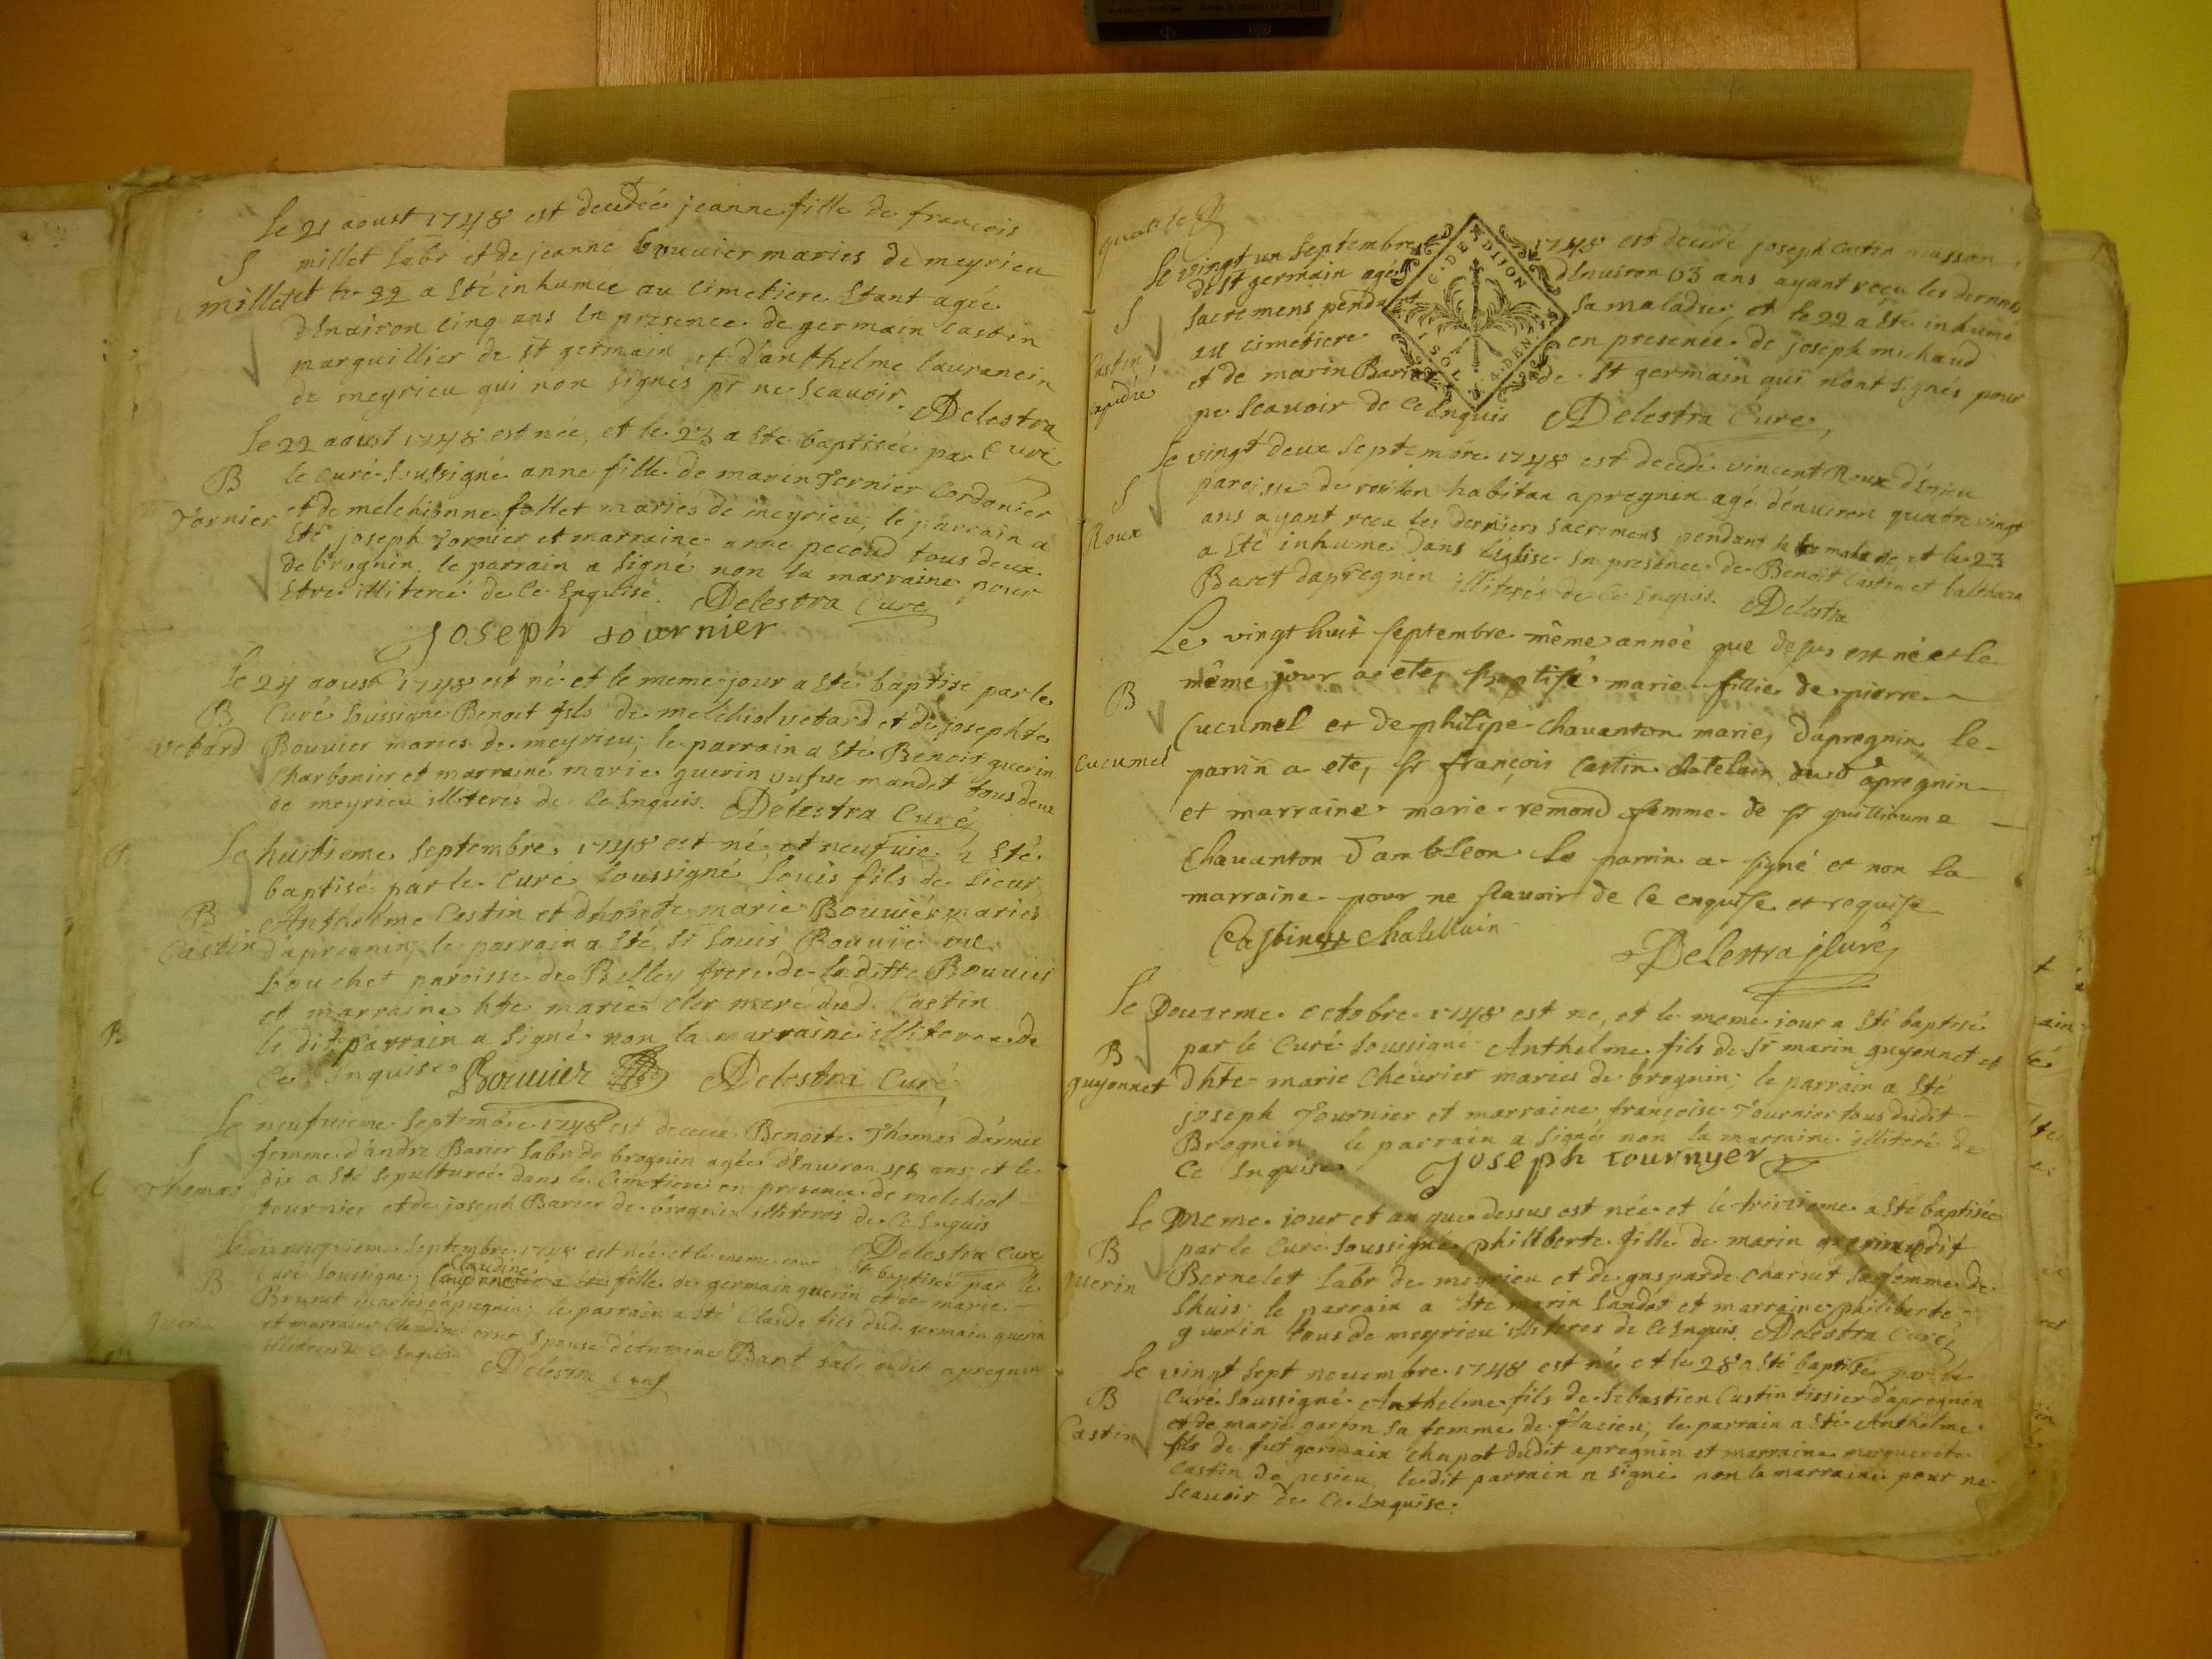 Le 21 aoust 1748 est decedée jeanne fille de francois
S millet labr et de jeanne bouvier maries de meyrieu
millet et le 22 a Eté inhumee au cimetiere Etant agée
dEnviron cinq ans En presence de germain castin
marguillier de st germain et d'anthelme laurancin
de meyrieu qui non signés pr ne scavoir. Delestra
Curé
Le 22 aoust 1748 est née, et le 23 a Ete baptisée par
B le curé soussigné anne fille de marin Tornier Cordonier
Tornier et de melchionne follet mariés de meyrieu; le parrain a
Eté joseph Tornier et marraine anne pecoud tous deux
de brognin. le parrain a signé non la marraine pour
Etre illiterée de ce Enquise. Delestra Curé
Joseph tournier
Le 24 aoust 1748 est né et le meme jour a Eté baptisé par le
B Curé soussigné Benoit fils de melchiol vetard et de josephte
vetard Bouvier maries de meyrieu; le parrain a Eté Benoit guerin
charbonier et marraine marie guerin vufue mandet tous deux
de meyrieu illiterés de ce Enquis. Delestra Curé
Le huitieme septembre 1748 est né et neufvie a Eté
baptisé par le Curé soussigné Louis fils de sieur
B Anthelme Castin et dhonte marie Bouvier maries
Castin d'apregnin, le parrain a Eté, sr Louis Bouvié
bouchet paroisse de Belley frere de la ditte Bouvier
et marraine hte marie cler mere dud. Castin
le dit parrain a signé non la marraine illiterée de
Ce Enquise Bouvier Delestra Curé
Le neufvieme septembre 1748 est decedée Benoite Thomas d'armix
S femme d'andré Barier labr de brognin agée d'Environ 45 ans; et le
Thomas dix a Eté sepulturée dans le cimetiere en presence de melchiol
tournier et de joseph Barier de brognin illiterés de ce Enquis
Delestra Curé
Le septembre 1748 est née et le meme jour a Eté baptisée par le
Claudine
B Curé soussigné, fille de germain guerin et de marie
Brunet mariés d'apregnin; le parrain a Eté Claude fils dud. germain guerin
guerin et marraine Claudine Epouse d'Antoine Baret labr dudit apregnin
illiterés de ce Enquis Delestra Curé
quatre
Le vingt un septembre 1748 est decedé joseph castin masson
de st germain agé dEnviron 63 ans ayant reçu les derniers
S sacremens pendant sa maladie, et le 22 a Eté inhumé
Castin au cimetiere en presence de joseph michaud
et de marin Barier de st germain qui n'ont signés pour
ne scavoir de ce Enquis Delestra Curé
G. DE DIJON
4. DEN.
Le vingt deux septembre 1748 est decedé vincent Roux d'Enieu
S paroisse de habitan apregnin agé d'environ quatre vingt
Roux ans ayant recu les derniers sacremens pendant sa maladie, et le 23
a Eté inhumé dans l'église En presence de Benoit Castin et balthazar
Baret dapregnin illiterés de ce Enquis. Delestra
Le vingt huit septembre même année que desus est né et le
B même jour a ete, baptisé marie fillie de pierre
Cucumel Cucumel et de philipe chavanton marie, d'apregnin le
parrin a ete, sr françois Castin chatelain dud apregnin
et marraine marie remond femme de sr guillioume
chavanton d'ambleon. le parrin a signé et non la
marraine pour ne scavoir de ce enquise et requise
Castin Delestra Curé
Le Douzeme octobre 1748 est né, et le meme jour a Eté baptisé
B par le Curé soussigné Anthelme fils de sr marin guyonnet et
guyonnet dhte marie cheurier maries de brognin; le parrain a Eté
joseph Tournier et marraine françoise Tournier tous dudit
Brognin le parrain a signé non la marraine illiteré de
Ce Enquise Joseph tournyer
Le meme jour et an que dessus est née et le treizieme a Eté baptisée
B par le Curé soussigné phillberte fille de marin guerin dit
guerin Bernelet labr de meyrieu et de gasparde charvet sa femme de
Lhuis. le parrain a Eté marin landot et marraine philiberte
guerin tous de meyrieu illiteres de ce Enquis. Delestra Curé
Le vingt sept novembre 1748 est né et le 28 a Eté baptisé par le
B Curé soussigné Anthelme fils de sebastien Castin tissier d'apregnin
Castin et de marie sa femme de flacieu; le parrain a Eté Anthelme
fils de fut germain chapot dudit apregnin et marraine marguerite
Castin de pesieu. ledit parrain a signé non la marraine pour ne
scavoir de ce Enquise.